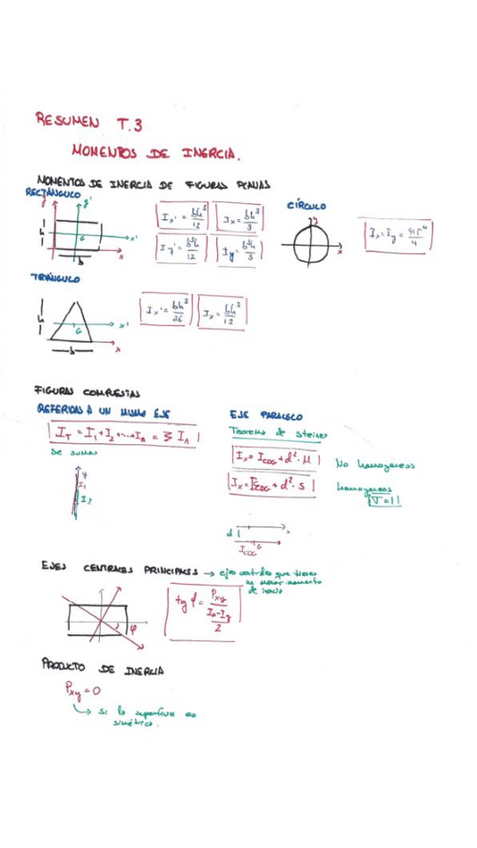 RESUMEN T.3
MOMENTOS DE INERCIA.
MOMENTOS DE INERCIA DE FIGURAS PLANAS
RECTÁNGULO
y y'
h G x'
b x
Ix' = bh³/12 Ix = bh³/3
Iy' = b³h/12 Iy = b³h/3
CÍRCULO
x
Ix = Iy = πr⁴/4
TRIÁNGULO
h G x'
b x
Ix' = bh³/36 Ix = bh³/12
FIGURAS COMPUESTAS
REFERIDAS A UN MISMO EJE
I_T = I₁ + I₂ + ... + Iₙ = Σ Iₙ
Se suman
I₁
I₂
EJE PARALELO
Teorema de Steiner
Ix = I_CDG + d² · M No homogéneos
Ix = I_CDG + d² · S homogéneos
σ = 1
d x
G
I_CDG
EJES CENTRALES PRINCIPALES → ejes centrales que tienen
momento
de inercia
φ
tg φ = Pxy / (Ix - Iy / 2)
PRODUCTO DE INERCIA
Pxy = 0
↳ si la superficie es
simétrica.